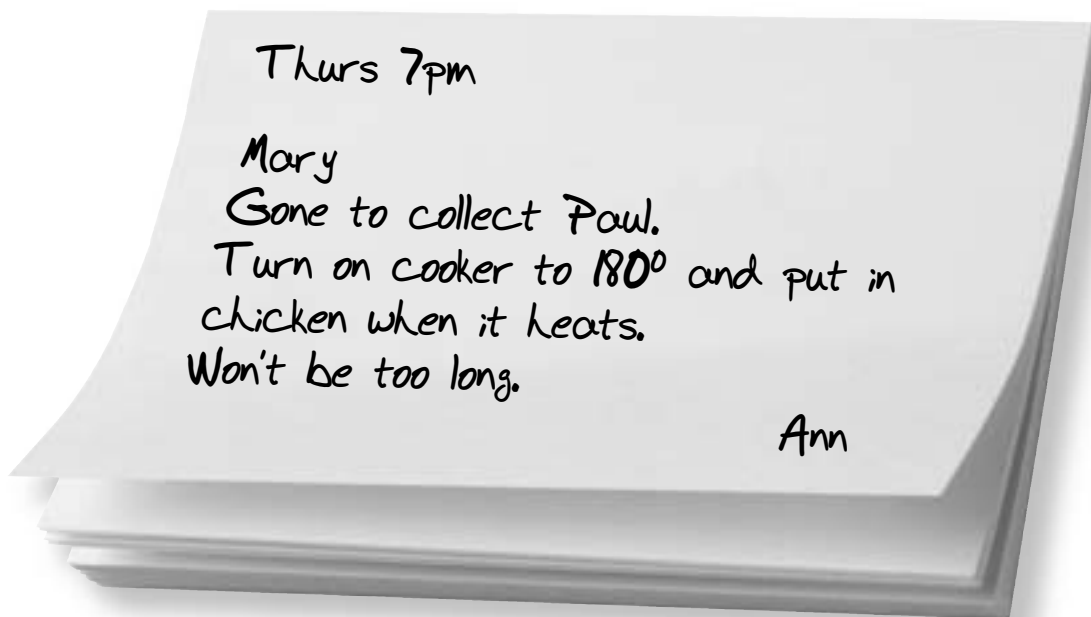 Thurs 7pm
Mary
Gone to collect Paul.
Turn on cooker to 180° and put in
chicken when it heats.
Won't be too long.
Ann